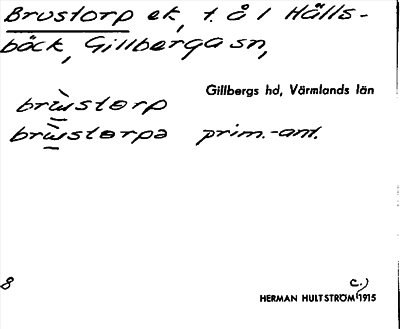 Brustorp ek, t. å 1 Hälls-
bäck, Gillberga sn,
Gillbergs hd, Värmlands län
brɯ̀storp
brɯ̀storpa prim.-ant.
8
c.)
HERMAN HULTSTRÖM 1915